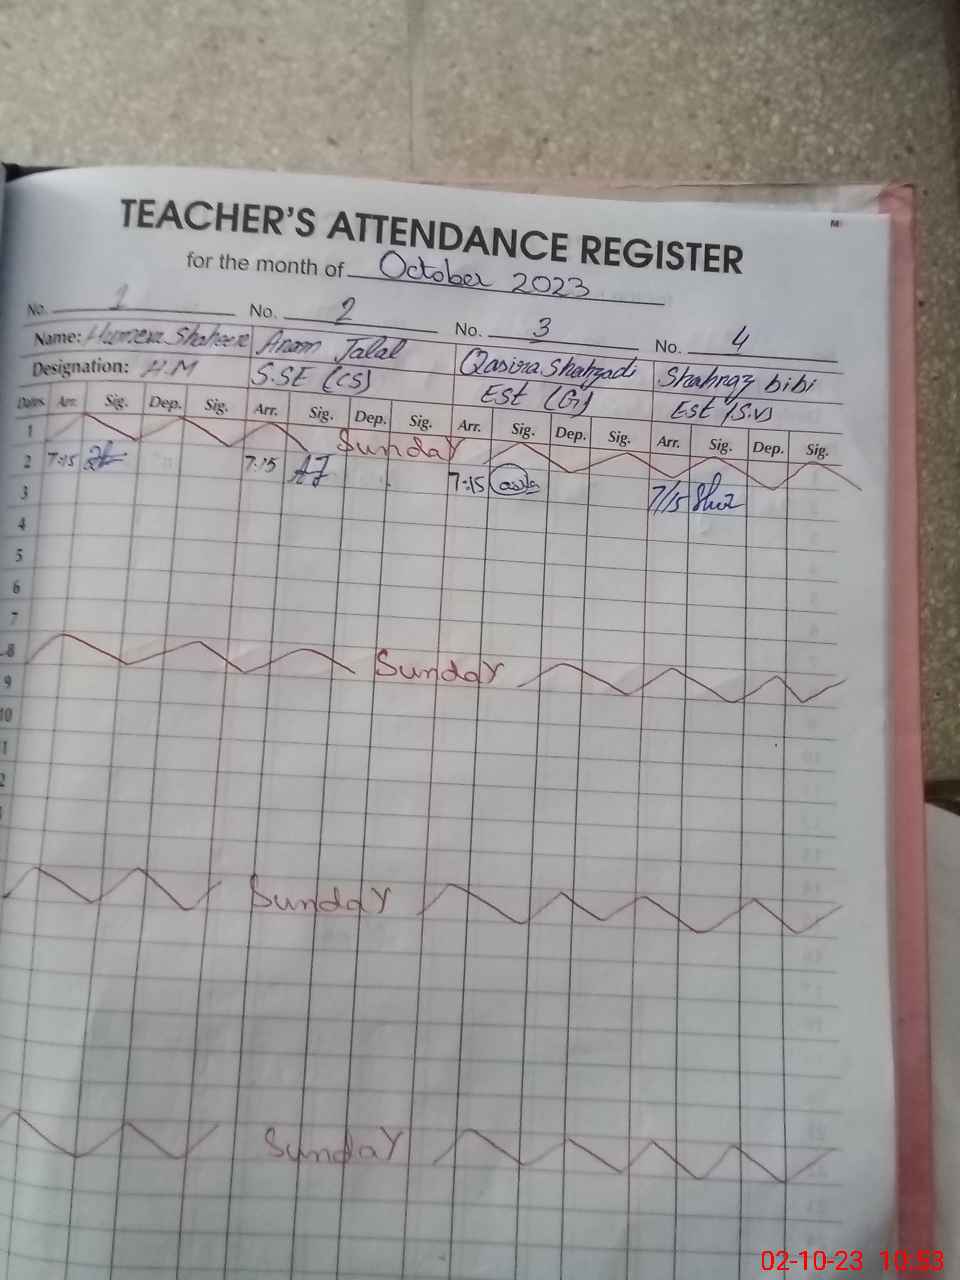 TEACHER'S ATTENDANCE REGISTER
for the month of October 2023
No. 1 No. 2 No. 3 No. 4
Name: Humera Shaheen Anam Jalal Qasira Shahzadi Shahnaz bibi
Designation: H.M S.SE (CS) Est (G) Est (S.V)
Dates Arr. Sig. Dep. Sig. Arr. Sig. Dep. Sig. Arr. Sig. Dep. Sig. Arr. Sig. Dep. Sig.
1 Sunday
2 7:15 7:15 AJ 7:15 7/15
3
4
5
6
7
8 Sunday
9
10
1
2
Sunday
Sunday
02-10-23 10:53